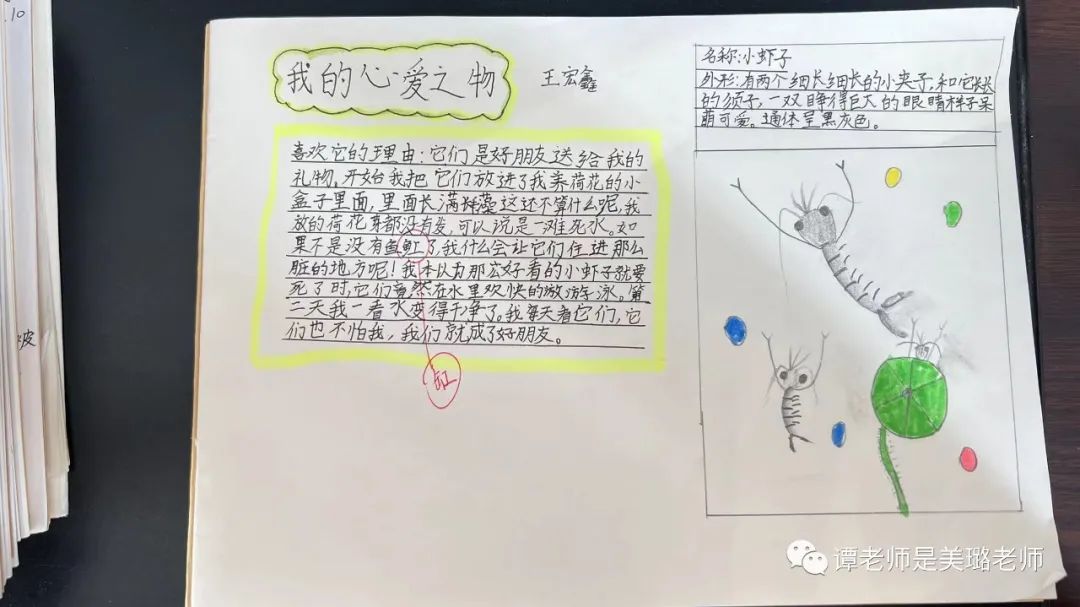 .10
我的心爱之物
王宏鑫
喜欢它的理由：它们是好朋友送给我的
礼物。开始我把它们放进了我养荷花的小
盒子里面，里面长满绿藻这还不算什么呢，我
放的荷花芽都没有发，可以说是一滩死水。如
果不是没有鱼缸了，我什么会让它们住进那么
脏的地方呢！我本以为那么好看的小虾子就要
死了时，它们竟然在水里欢快的放游泳。第
二天我一看水变得干净了。我每天看它们，它
们也不怕我，我们就成了好朋友。
缸
名称：小虾子
外形：有两个细长细长的小夹子，和它长长
的须子，一双睁得巨大的眼睛样子呆
萌可爱。通体呈黑灰色。
皮
谭老师是美璐老师